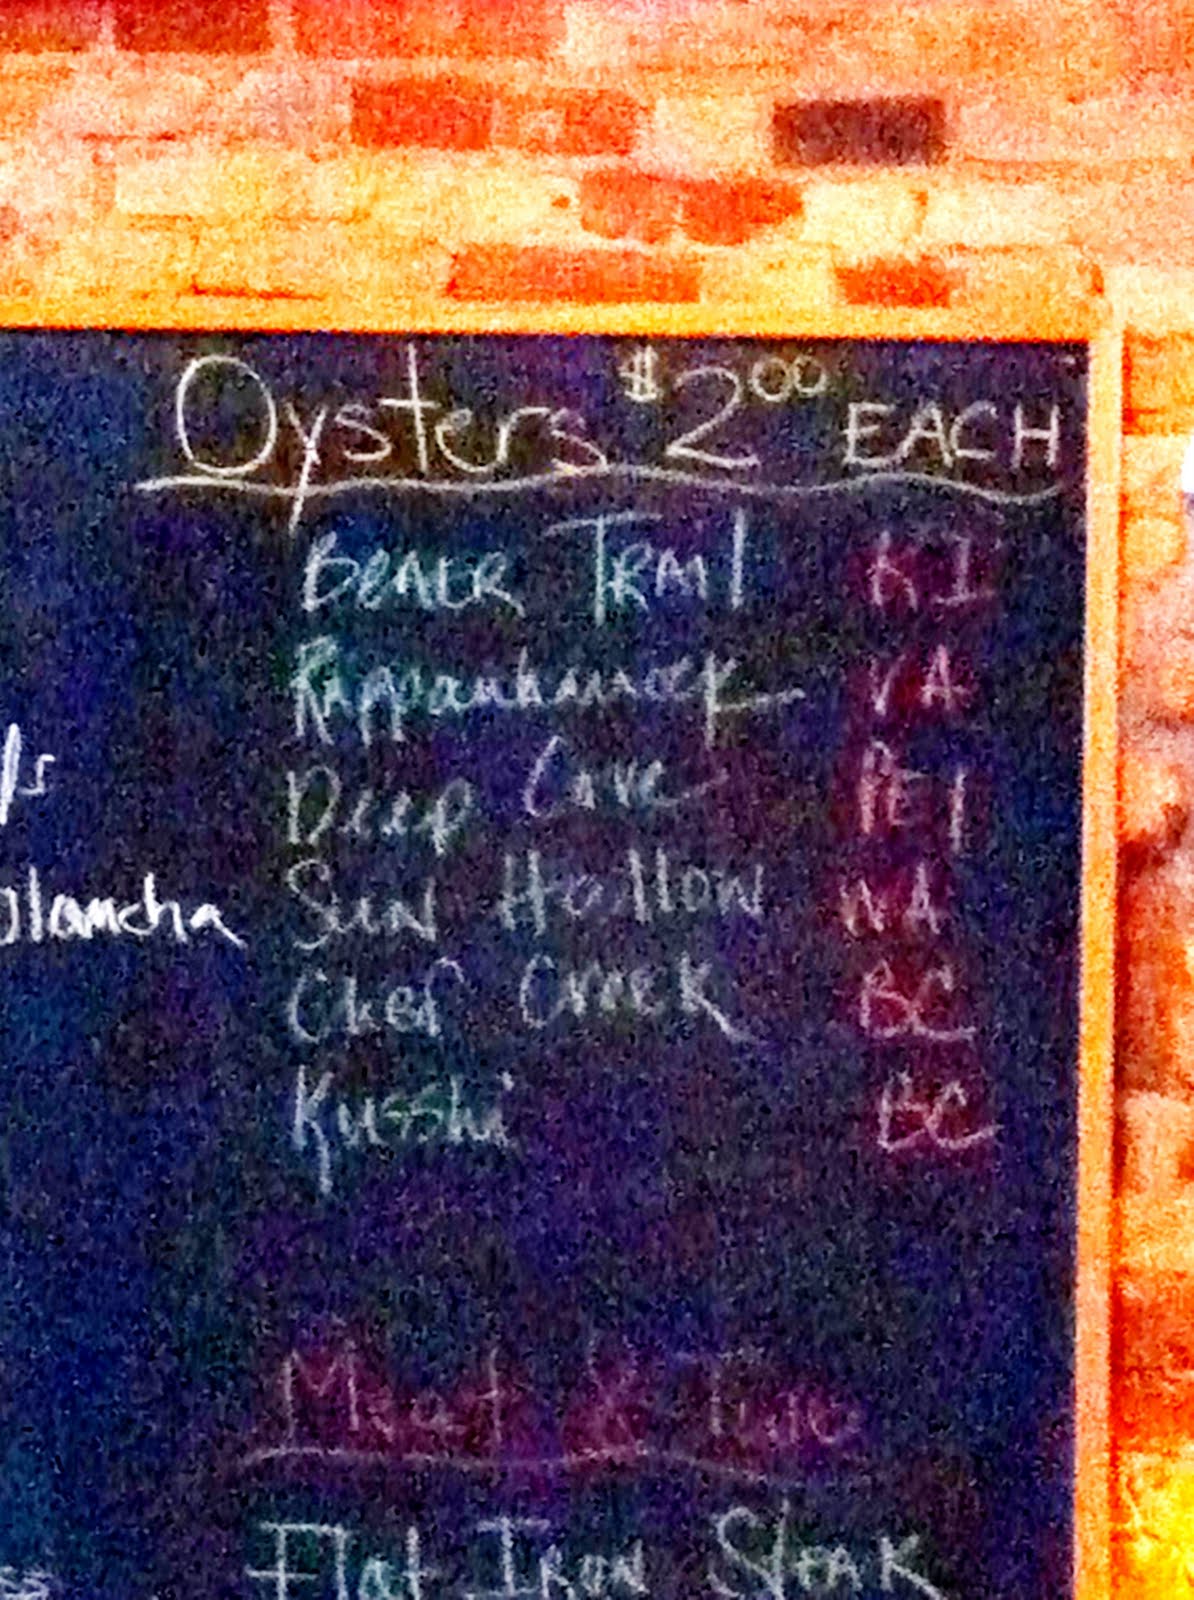 Oysters $2.00 EACH
Beaver Trail RI
Rappanhannock VA
Deep Cove PEI
Sun Hollow WA
Chef Creek BC
Kusshi BC
Meat &
Flat Iron Steak